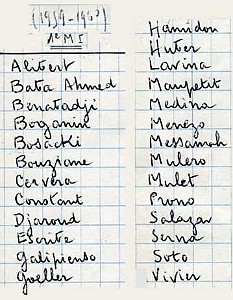 (1959-1960)
1e M I
Alibert
Bata Ahmed
Benatadji
Borganin
Bosacki
Bouziane
Cervera
Constant
Djaroud
Escrite
Galipienso
Goeller
Hamidou
Huter
Lavina
Maupetit
Medina
Menezo
Messamah
Mulero
Mulet
Prono
Salazar
Serna
Soto
Vivier